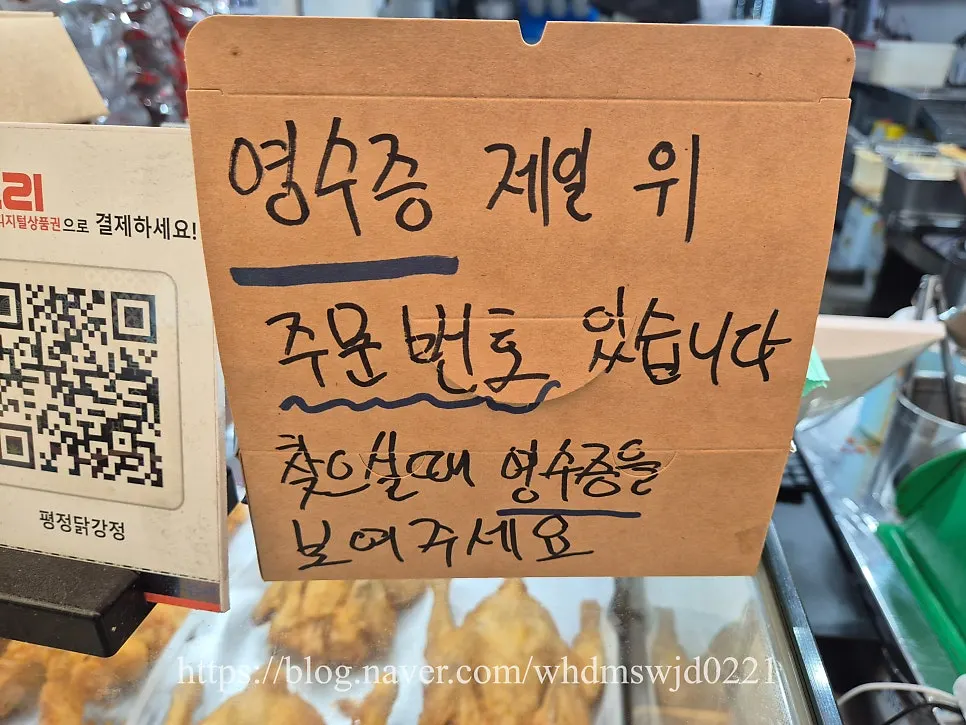 영수증 제일 위
주문번호 있습니다
찾으실때 영수증을
보여주세요
디지털상품권으로 결제하세요!
평정닭강정
https://blog.naver.com/whdmswjd0221